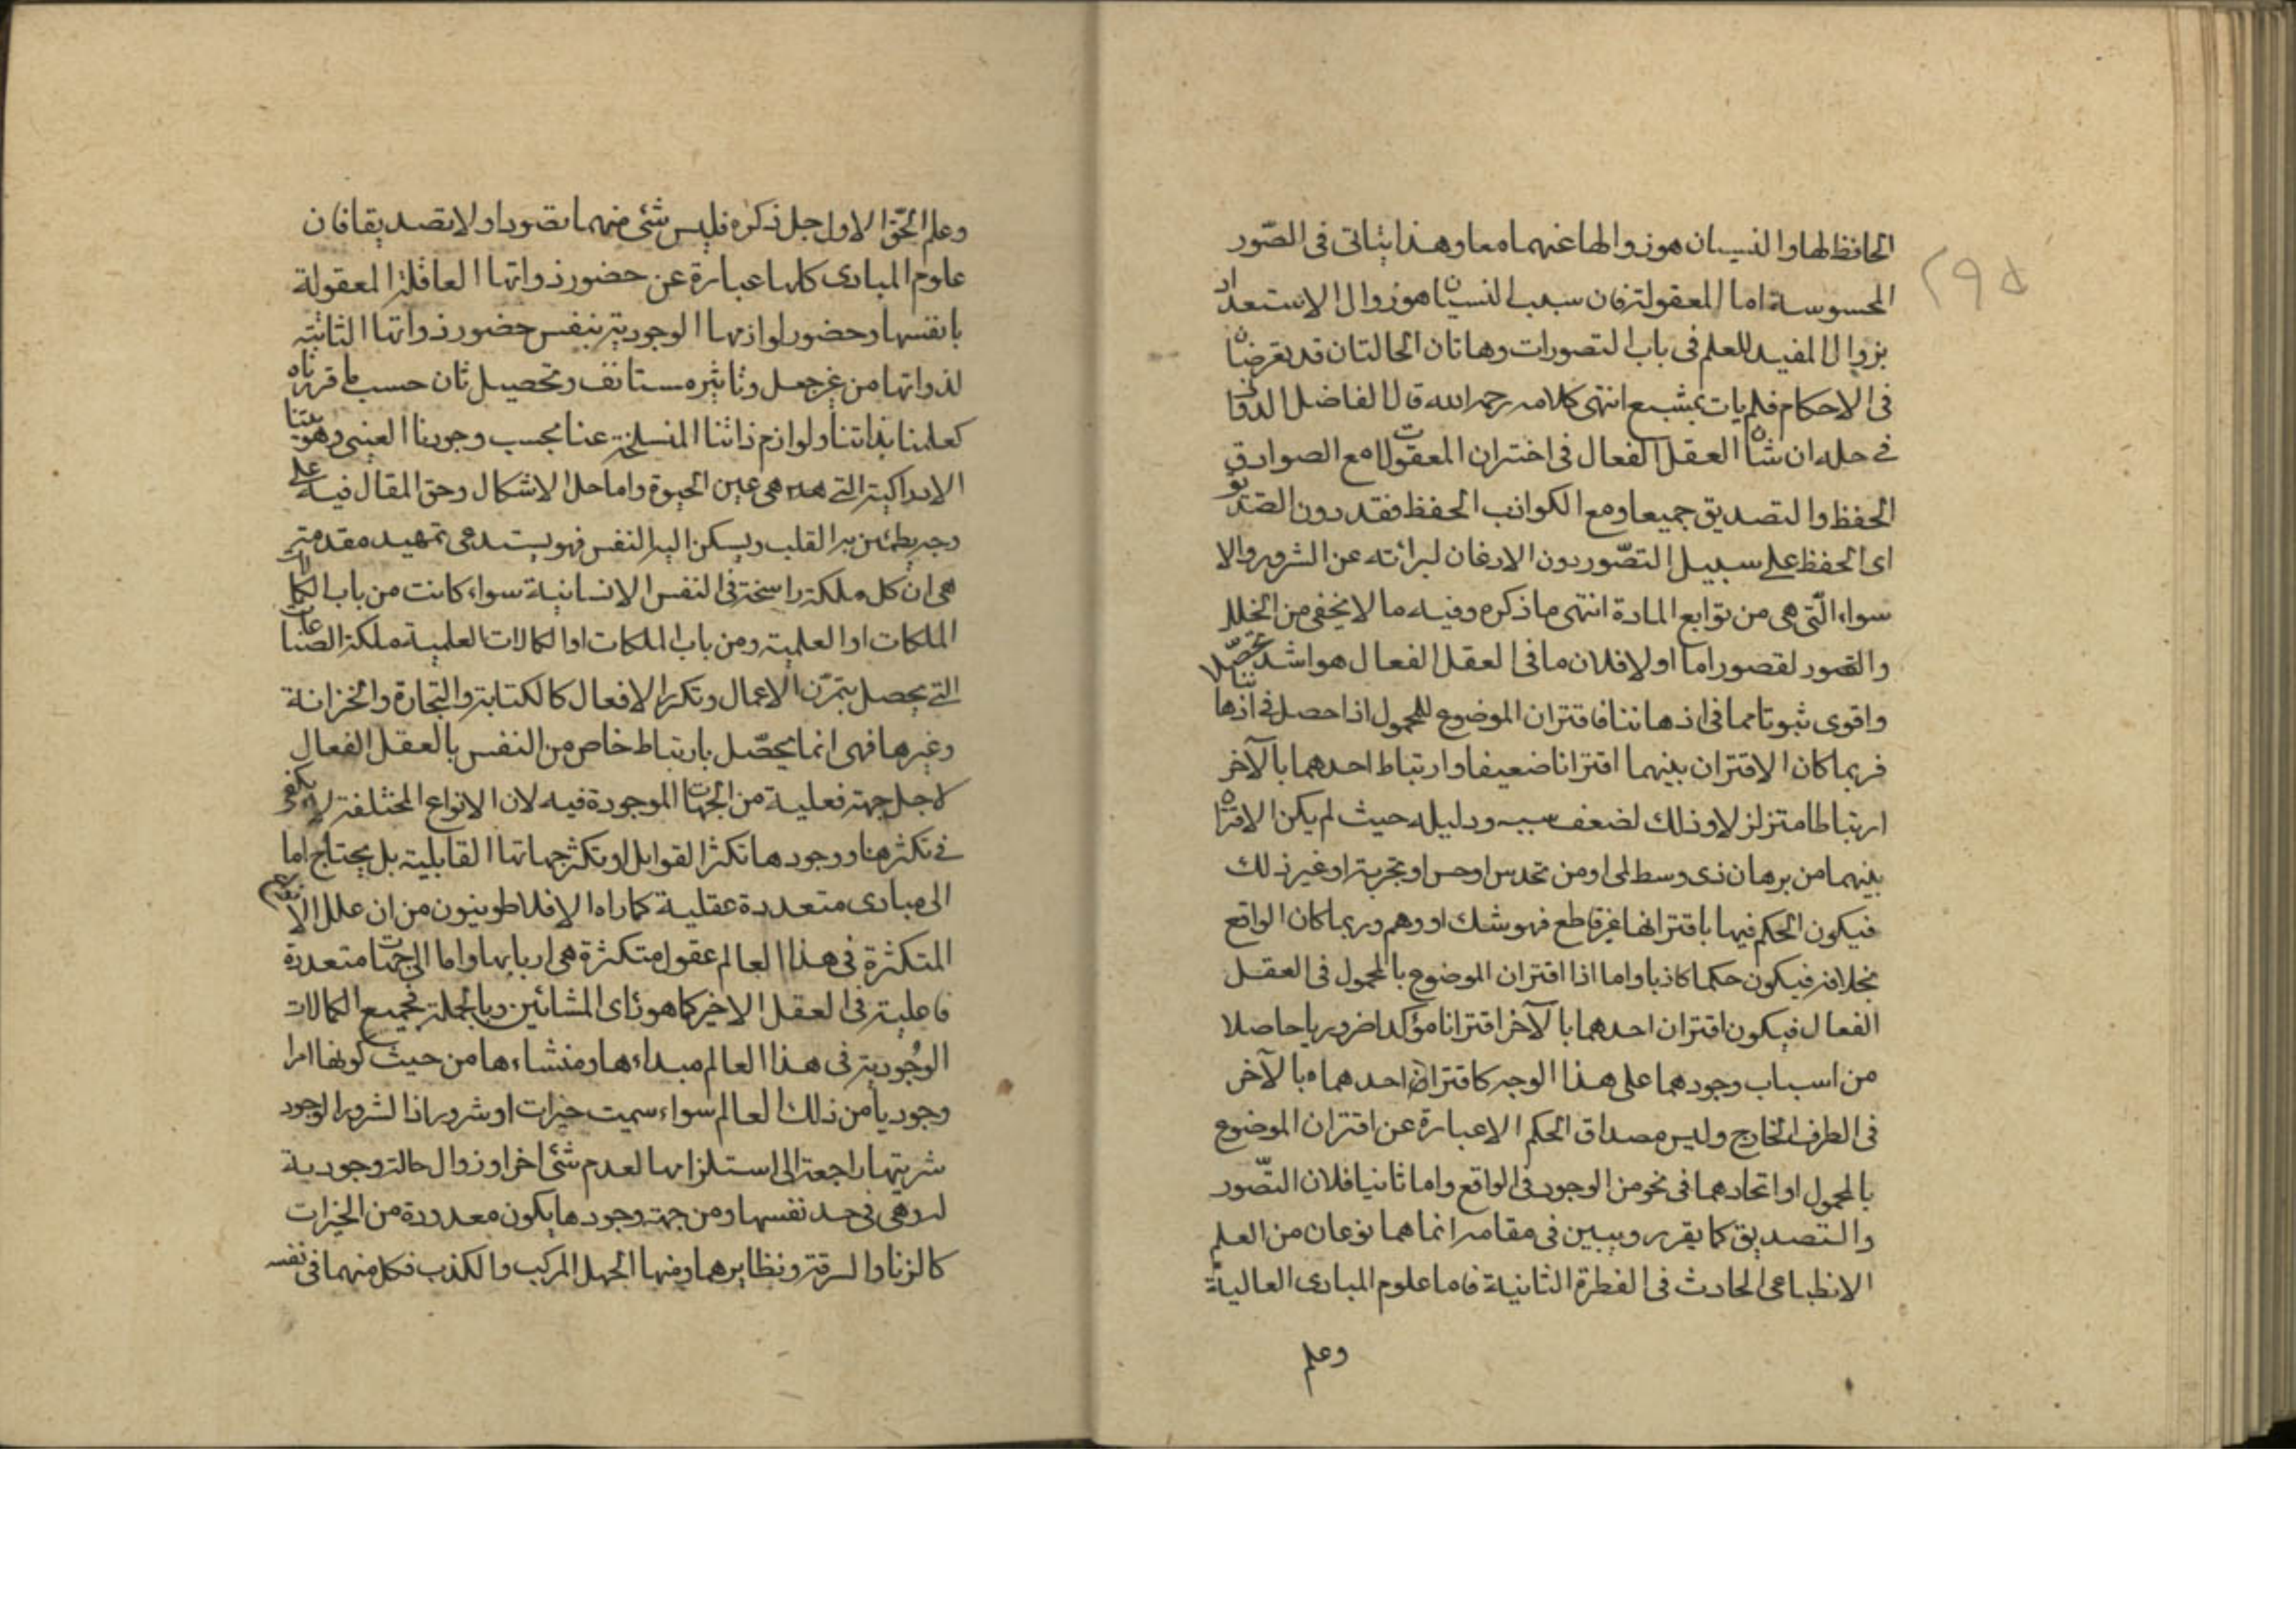 الحافظ لها والنسيان هو زوالها عنهما معا وهذا يتاتى فى الصّور
المحسوسة اما المعقولة فان سبب النسيان هو زوال الاستعداد
بزوال المفيد للعلم فى باب التصورات وهاتان الحالتان قد تعرضان
فى الاحكام فلم يات بمشبع انتهى كلامه رحمه الله قال الفاضل الدوانى
فى حله ان شان العقل الفعال فى اختزان المعقولات مع الصوادق
الحفظ والتصديق جميعا ومع الكواذب الحفظ فقد دون التصديق
اى الحفظ على سبيل التصّور دون الاذعان لبرائته عن الشرور والا
سواء الّتى هى من توابع المادة انتهى ما ذكره وفيه ما لا يخفى من الخلل
والقصور لقصور اما اولا فلان ما فى العقل الفعال هو اشد تحصّلا
واقوى ثبوتا مما فى اذهاننا فاقتران الموضوع للمحمول اذا حصل فى اذهاننا
فربما كان الاقتران بينهما اقترانا ضعيفا وارتباط احدهما بالآخر
ارتباطا متزلزلا وذلك لضعف سببه ودليله حيث لم يكن الاقتران
بينهما من برهان ذى وسط لمى او من تحدس او حس او تجربة او غير ذلك
فيكون الحكم فيها باقترانها غير قاطع فهو شك او وهم وربما كان الواقع
بخلافه فيكون حكما كاذبا واما اذا اقتران الموضوع بالمحمول فى العقل
الفعال فيكون اقتران احدهما بالآخر اقترانا مؤكدا ضروريا حاصلا
من اسباب وجودهما على هذا الوجه كاقتران احدهما بالآخر
فى الطرف الخارج وليس مصداق الحكم الا عبارة عن اقتران الموضوع
بالمحمول او اتحادهما فى نحو من الوجود فى الواقع واما ثانيا فلان التصّور
والتصديق كما يقرر ويبين فى مقامه انما هما نوعان من العلم
الانطباعى الحادث فى الفطرة الثانية فاما علوم المبادى العالية
وعلم
وعلم الحقّ الاول جل ذكره فليس شئ منهما تصورا ولا تصديقا فان
علوم المبادى كلها عبارة عن حضور ذواتها العاقلة المعقولة
بانفسها وحضور لوازمها الوجودية بنفس حضور ذواتها الثابتة
لذواتها من غير جعل وتاثير مستانف وتحصيل ثان حسب ما قررناه
كعلمنا بذاتنا ولوازم ذاتنا المنسلخة عنا بحسب وجودنا العينى وهويتنا
الادراكية التى هى عين الحيوة واما حل الاشكال وحق المقال فيه على
وجه يطمئن به القلب ويسكن اليه النفس فهو يستدعى تمهيد مقدمة
هى ان كل ملكة راسخة فى النفس الانسانية سواء كانت من باب الكمالات
الملكات او العلمية ومن باب الملكات او الكمالات العلمية ملكة الصناعات
التى يحصل بتمرّن الاعمال وتكرر الافعال كالكتابة والتجارة والخزانة
وغيرها فهى انما يحصّل بارتباط خاص من النفس بالعقل الفعال
لاجل جهة فعلية من الجهات الموجودة فيه لان الانواع المختلفة لا يكفى
فى تكثرها ووجودها تكثر القوابل او تكثر جهاتها القابلية بل يحتاج اما
الى مبادى متعددة عقلية كما راه الافلاطونيون من ان علل الانواع
المتكثرة فى هذا العالم عقول متكثرة هى اربابها واما الى جهات متعددة
فاعلية فى العقل الاخير كما هو رأى المشائين وبالجملة فجميع الكمالات
الوجُودية فى هذا العالم مبداءها ومنشاءها من حيث كونها امرا
وجوديا من ذلك العالم سواء سميت خيرات او شرور اذ الشرور الوجود
شريتها راجعة الى استلزامها لعدم شئ اخر او زوال حالة وجودية
له وهى فى حد نفسها ومن جهة وجودها يكون معدودة من الخيرات
كالزنا والسرقة ونظايرهما ومنها الجهل المركب والكذب فكل منهما فى نفسه